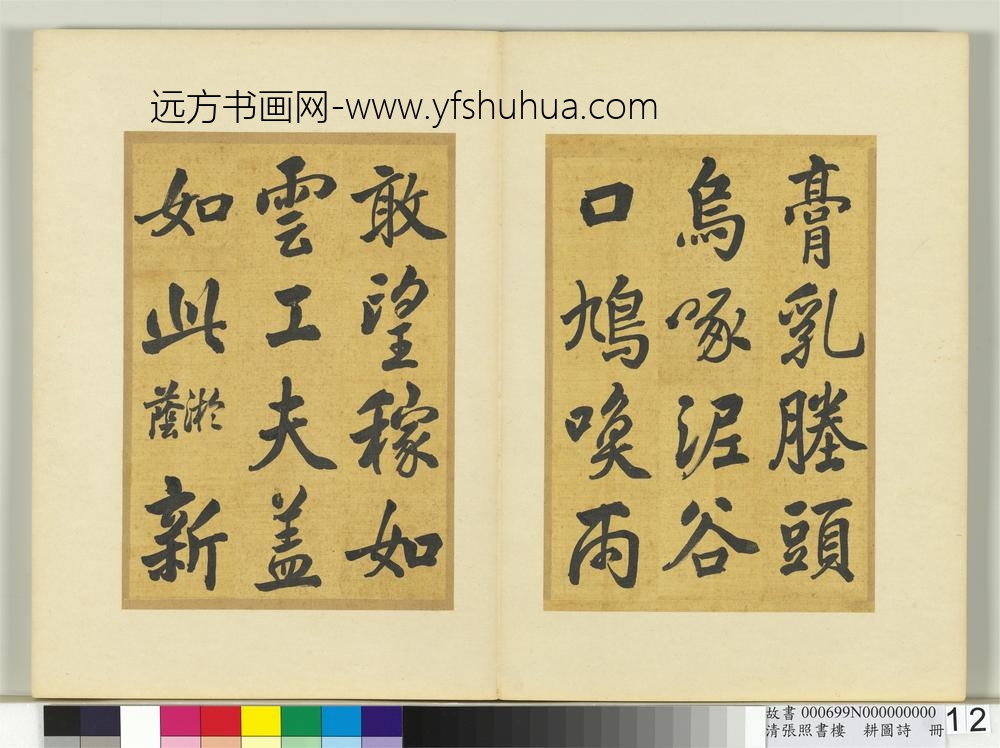 远方书画网-www.yfshuhua.com
膏乳塍頭
烏啄泥谷
口鳩喚雨
敢望稼如
雲工夫盖
如此淤蔭新
故書 000699N000000000
清張照書樓 耕圖詩 冊
12